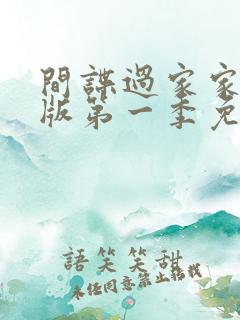 間諜過家家
版第一季免
語笑笑甜
未經同意禁止轉載